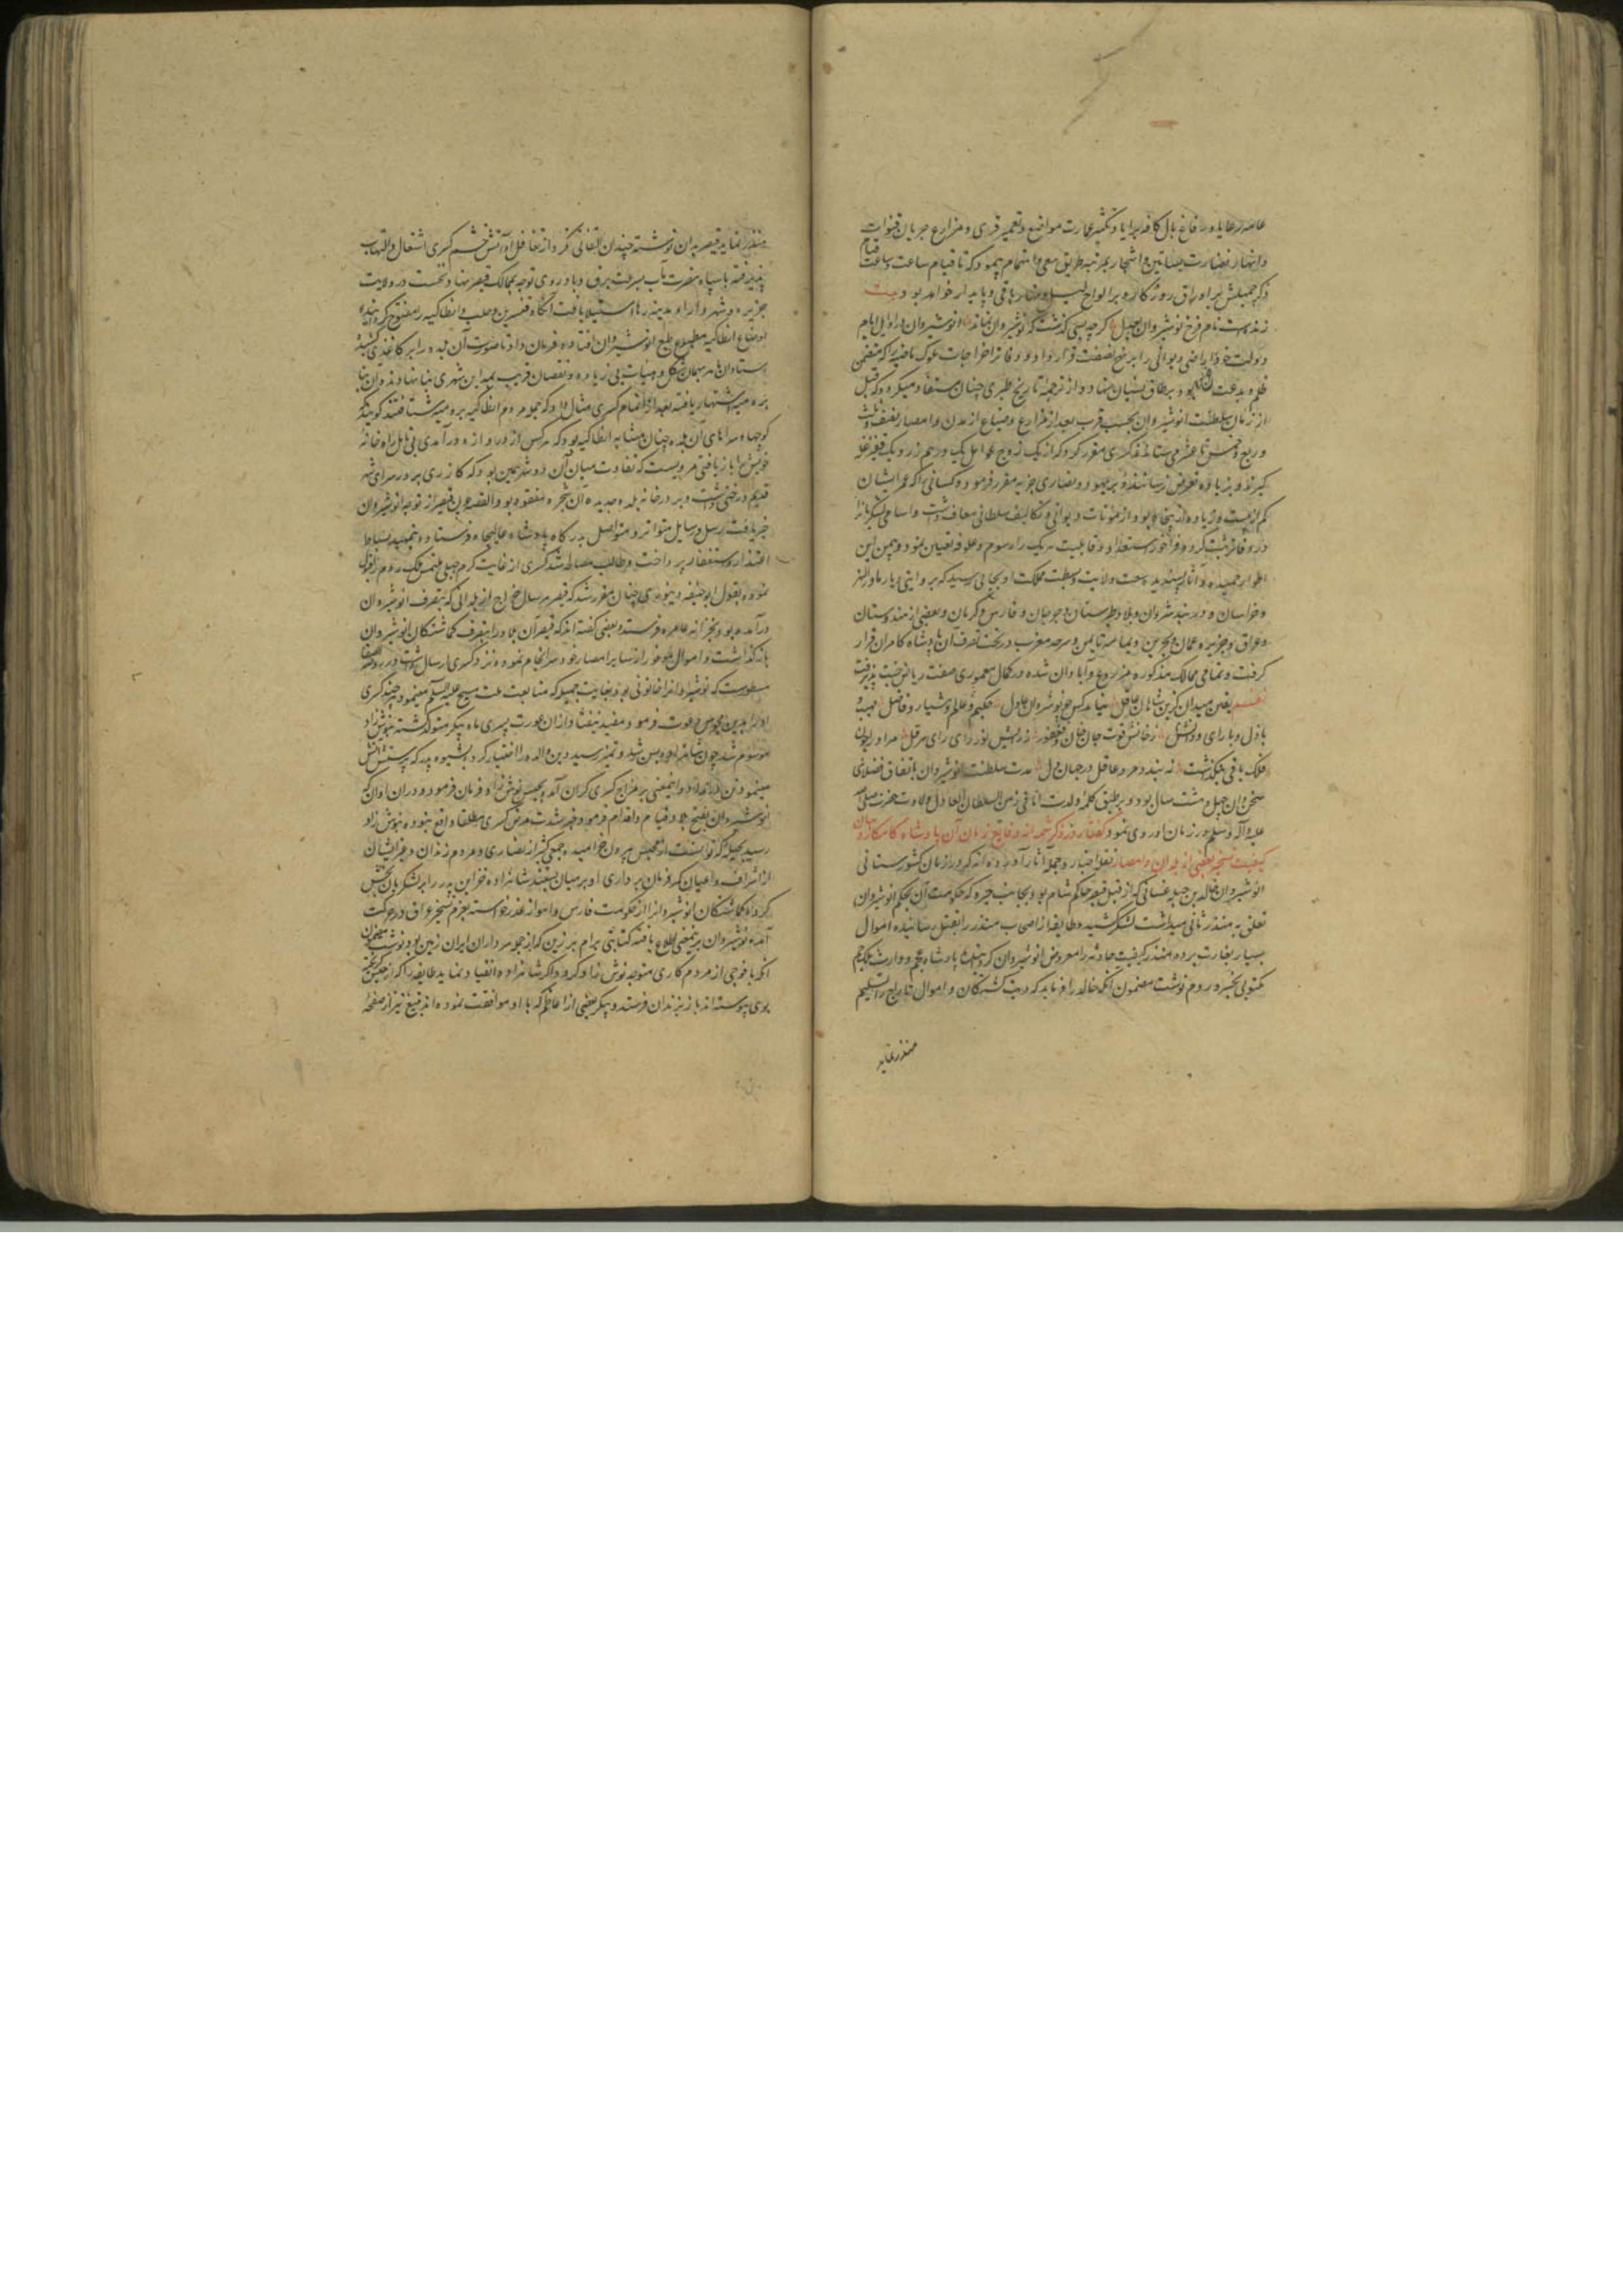 عامه رعایا و رفاغ بال کافه برایا و تکثیر عمارت مواضع و تعمیر قری و مزارع جریان قنوات
و انهار و نضارت بساتین و اشجار بمرتبه طریق سعی و اهتمام پیمود که تا قیام ساعت و ساعت قیام
ذکر جمیلش بر اوراق روزکار و بر الواح لیل و نهار باقی و پایدار خواهد بود بیت
زنده است نام فرخ نوشیروان بعدل کرچه بسی کذشت که نوشیروان نماند انوشیروان در اوایل ایام
دولت خود اراضی دیوانی را بر نهج نصفت قرار داد و دفاتر اخراجات ملوک ماضیه را که متضمن
ظلم و بدعت بود بر طاق نسیان نهاد و از ترجمه تاریخ طبری چنان مستفاد میکردد که قبل
از زمان سلطنت انوشیروان بحسب قرب و بعد از مزارع و ضیاع از مدن و امصار نصف و ثلث
و ربع و خمس تا عشر می ستاندند کسری مقرر کرد که از یک زوج عوامل یک درهم زر و یک قفیز غله
کیرند و بزیاده تعرض نرسانند و بر یهود و نصاری جزیه مقرر فرمود و کسانی که عمر ایشان
کم از بیست و زیاده از پنجاه بود از مؤنات دیوانی و تکالیف سلطانی معاف داشت و اسامی لشکریان را
در دفاتر ثبت کرده فراخور استعداد و قابلیت هریک را مرسوم و علوفه تعیین نمود و بیمن این
اطوار حمیده و آثار پسندیده وسعت ولایت و بسطت مملکت او بجایی رسید که بروایتی دیار ماوراءالنهر
و خراسان و دربند شروان و بلاد طبرستان و جرجان و فارس و کرمان و بعضی از هندوستان
و عراق و جزیره و عمان و بحرین و یمامه تا یمن و سرحد مغرب در تحت تصرف آن پادشاه کامران قرار
کرفت و تمامی ممالک مذکوره مزروع و آبادان شده در کمال معموری صفت ریاض جنت پذیرفت
نظم یقین میدان کزین شاهان عاقل نیاید کس چو نوشروان عادل حکیم و عالم و هشیار و فاضل مهیب و
باذل و با رای و دانش ز خانش قوت جان خان و فغفور ز رایش نور رای رای هرقل مر او را چون
فلک باقی بنکذاشت نه بندد مرد عاقل در جهان دل مدت سلطنت انوشیروان باتفاق فضلای
سخن دان چهل و هشت سال بود و بر طبق کلمه ولدت انا فی زمن السلطان العادل ولادت حضرت صلی الله
علیه و آله و سلم در زمان او روی نمود کفتار در ذکر شمه از وقایع زمان آن پادشاه کامکار و بیان
کیفیت تسخیر بعضی از بلدان و امصار نقله اخبار و حمله آثار آورده اند که در زمان کشورستانی
انوشیروان خالد بن جبله غسانی که از قبل قیصر حاکم شام بود بجانب حیره که حکومت آن بحکم انوشیروان
تعلق به منذر ثانی میداشت لشکر کشید و طایفه از اصحاب منذر را بقتل رسانیده اموال
بسیار بغارت برد منذر کیفیت حادثه را معروض انوشیروان کردانید پادشاه عجم و وارث ملک جم
مکتوبی بقیصر روم نوشت مضمون آنکه خالد را فرماید که دیت کشتکان و اموال تاراج را تسلیم
منذر نماید
منذر نماید قیصر بدان نوشته چندان التفاتی نکرد از تغافل او آتش خشم کسری اشتعال و التهاب
پذیرفته با سپاه نصرت مآب بسرعت برق و باد روی توجه بممالک قیصر نهاد و نخست در ولایت
جزیره و شهر دارا و مدینه رها استیلا یافت آنکاه قنسرین و حلب و انطاکیه را مفتوح کردانید و
اوضاع انطاکیه مطبوع طبع انوشیروان افتاده فرمان داد تا صورت آن بلده را بر کاغذی کشیده
استادان ماهر بهمان شکل و هیئات بی زیاده و نقصان قریب بمداین شهری بنا نهادند و آن بنا
برومیه اشتهار یافته بعد از اتمام کسری مثال داد که عموم مردم انطاکیه برومیه شتافتند کویند که
کوچها و سراهای آن بلده چنان مشابه انطاکیه بود که هرکس از دروازه درآمدی بی تأمل راه خانه
خویش را بازیافتی مرویست که تفاوت میان آن دو شهر همین بود که کازری بر در سرای شهر
قدیم درختی داشت و بر در خانه بلده جدیده آن شجره مفقود بود القصه چون قیصر از توجه انوشیروان
خبر یافت رسل و رسایل متواتر و متواصل بدرکاه پادشاه عالیجاه فرستاده بتمهید بساط
اعتذار و استغفار پرداخت و طالب مصالحه شد کسری از غایت کرم جبلی ملتمس ملک روم را قبول
نموده بقول ابوحنیفه دینوری چنان مقرر شد که قیصر هر سال خراج از بلدانی که بتصرف انوشیروان
درآمده بود بخزانه عامره فرستد و بعضی کفته اند که قیصر آن بلاد را بتصرف کماشتکان انوشیروان
بازکذاشت و اموال موفور از سایر امصار خود سرانجام نموده نزد کسری ارسال داشت در روضة الصفا
مسطورست که نوشیروان را خاتونی بود بغایت جمیله که متابعت ملت مسیح علیه السلم مینمود هرچند کسری
او را بدین مجوس دعوت فرمود مفید نیفتاد از آن عورت پسری ماه پیکر متولد کشته بنوش زاد
موسوم شد چون شاهزاده بسن رشد و تمیز رسید دین والده را اختیار کرد بشیوه پدر که پرستش آتش
مینمود تن در نداد و اینمعنی بر مزاج کسری کران آمد بحبس نوش زاد فرمان فرمود و دران اوان که
انوشیروان بفتح بلاد قیام و اقدام فرمود خبر شدت مرض کسری مطلقا واقع نبوده بنوش زاد
رسید بحیله که توانست از محبس بیرون خرامید و جمعی کثیر از نصاری و مردم زندان و غیر ایشان
از اشراف و اعیان کمر فرمان برداری او بر میان بستند شاهزاده خزاین پدر را بر لشکریان بخش
کرد و کماشتکان انوشیروان را از حکومت فارس و اهواز عذر خواسته بعزم تسخیر عراق در حرکت
آمد و انوشیروان برینمعنی اطلاع یافته کتابتی برام برزین که از جمله سرداران ایران زمین بود نوشت مضمون
آنکه با فوجی از مردم کاری متوجه نوش زاد کردد و اکر شاهزاده انقیاد نماید طایفه را که از حبس کریخته
بوی پیوسته اند باز بزندان فرستد و پیکر بعضی از اعاظم که با او موافقت نموده اند بتیغ تیز از صفحه